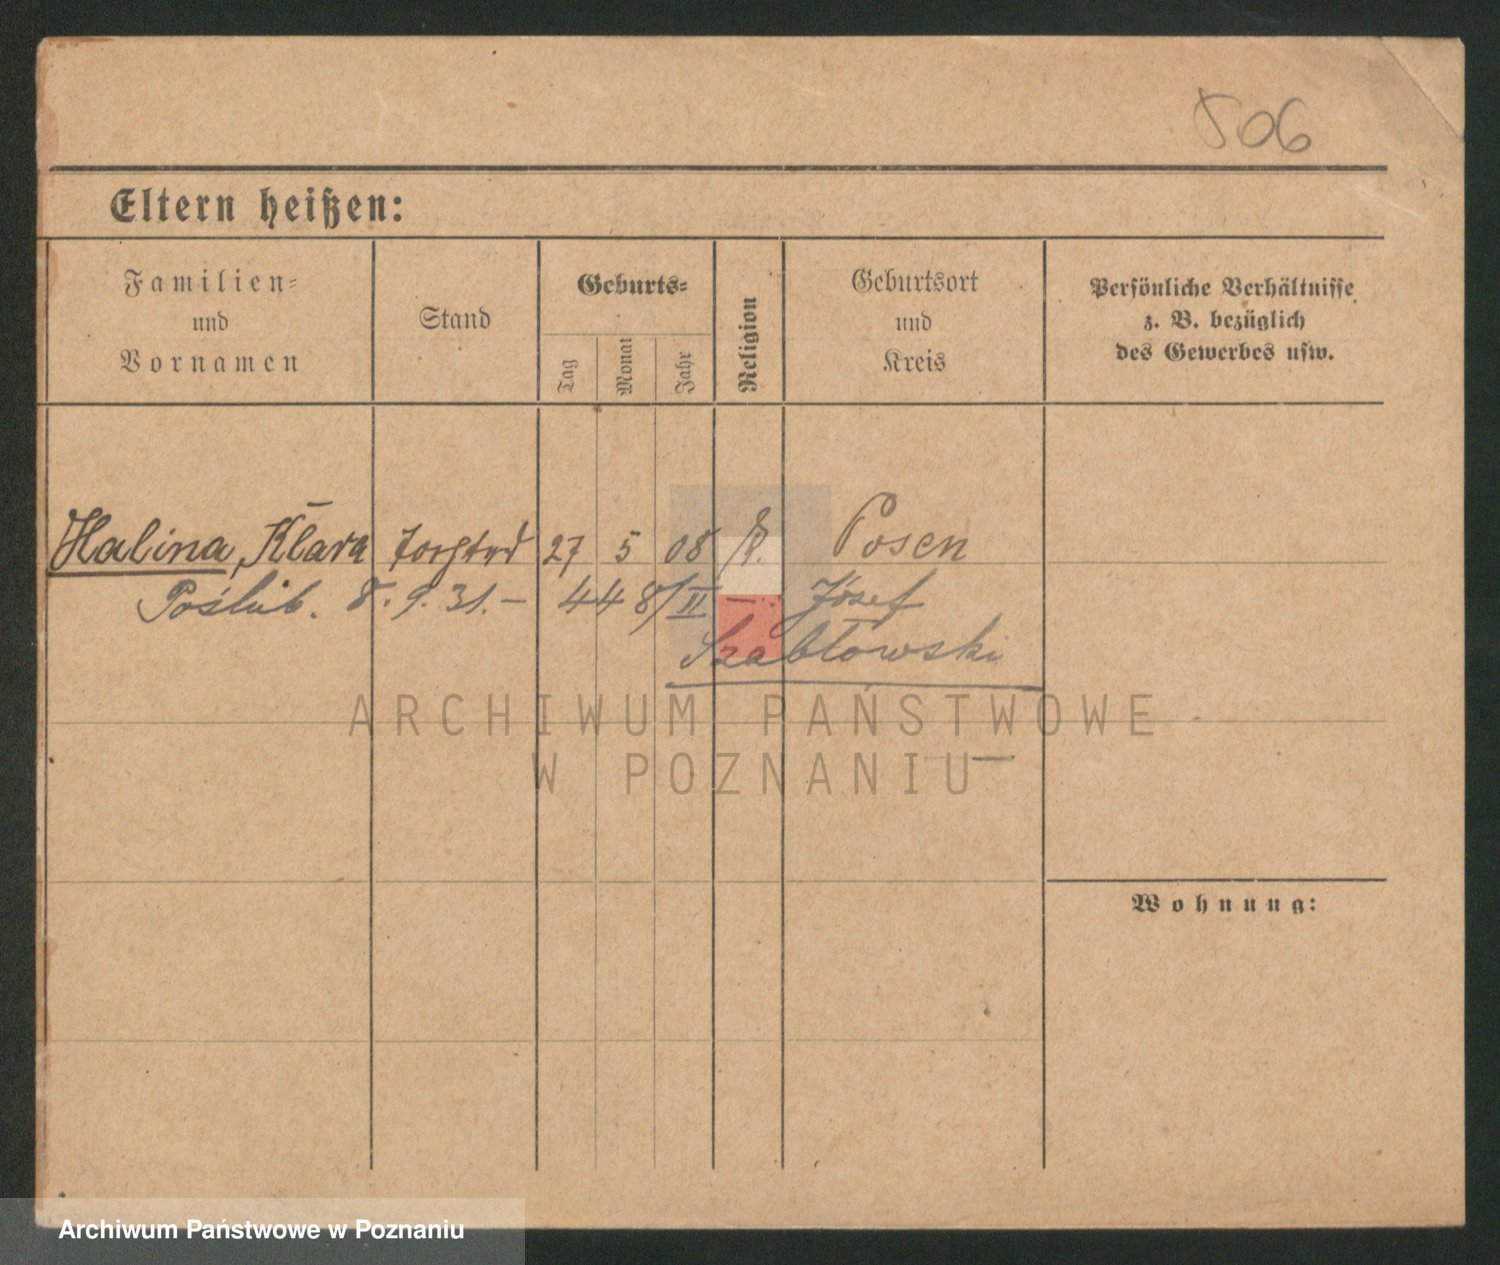 506
Eltern heißen:
Familien=
und
Vornamen
Stand
Geburts=
Tag
Monat
Jahr
Religion
Geburtsort
und
Kreis
Persönliche Verhältnisse
z. B. bezüglich
des Gewerbes usw.
Halina, Klara 27 5 08 k. Posen
Poślub. 8. 9. 31. — 448/II —.. Józef
Szabłowski
ARCHIWUM PAŃSTWOWE
W POZNANIU
Wohnung:
Archiwum Państwowe w Poznaniu